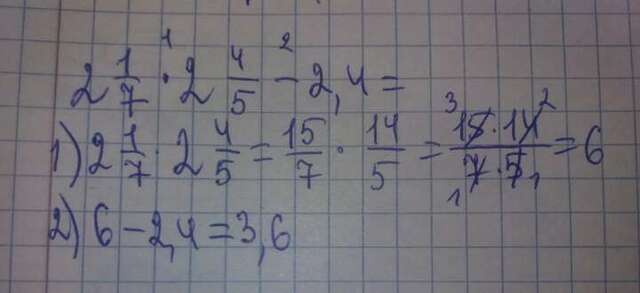 2 1/7 · 2 4/5 - 2,4 =
1) 2 1/7 · 2 4/5 = 15/7 · 14/5 = 15·14/7·5 = 6
2) 6 - 2,4 = 3,6